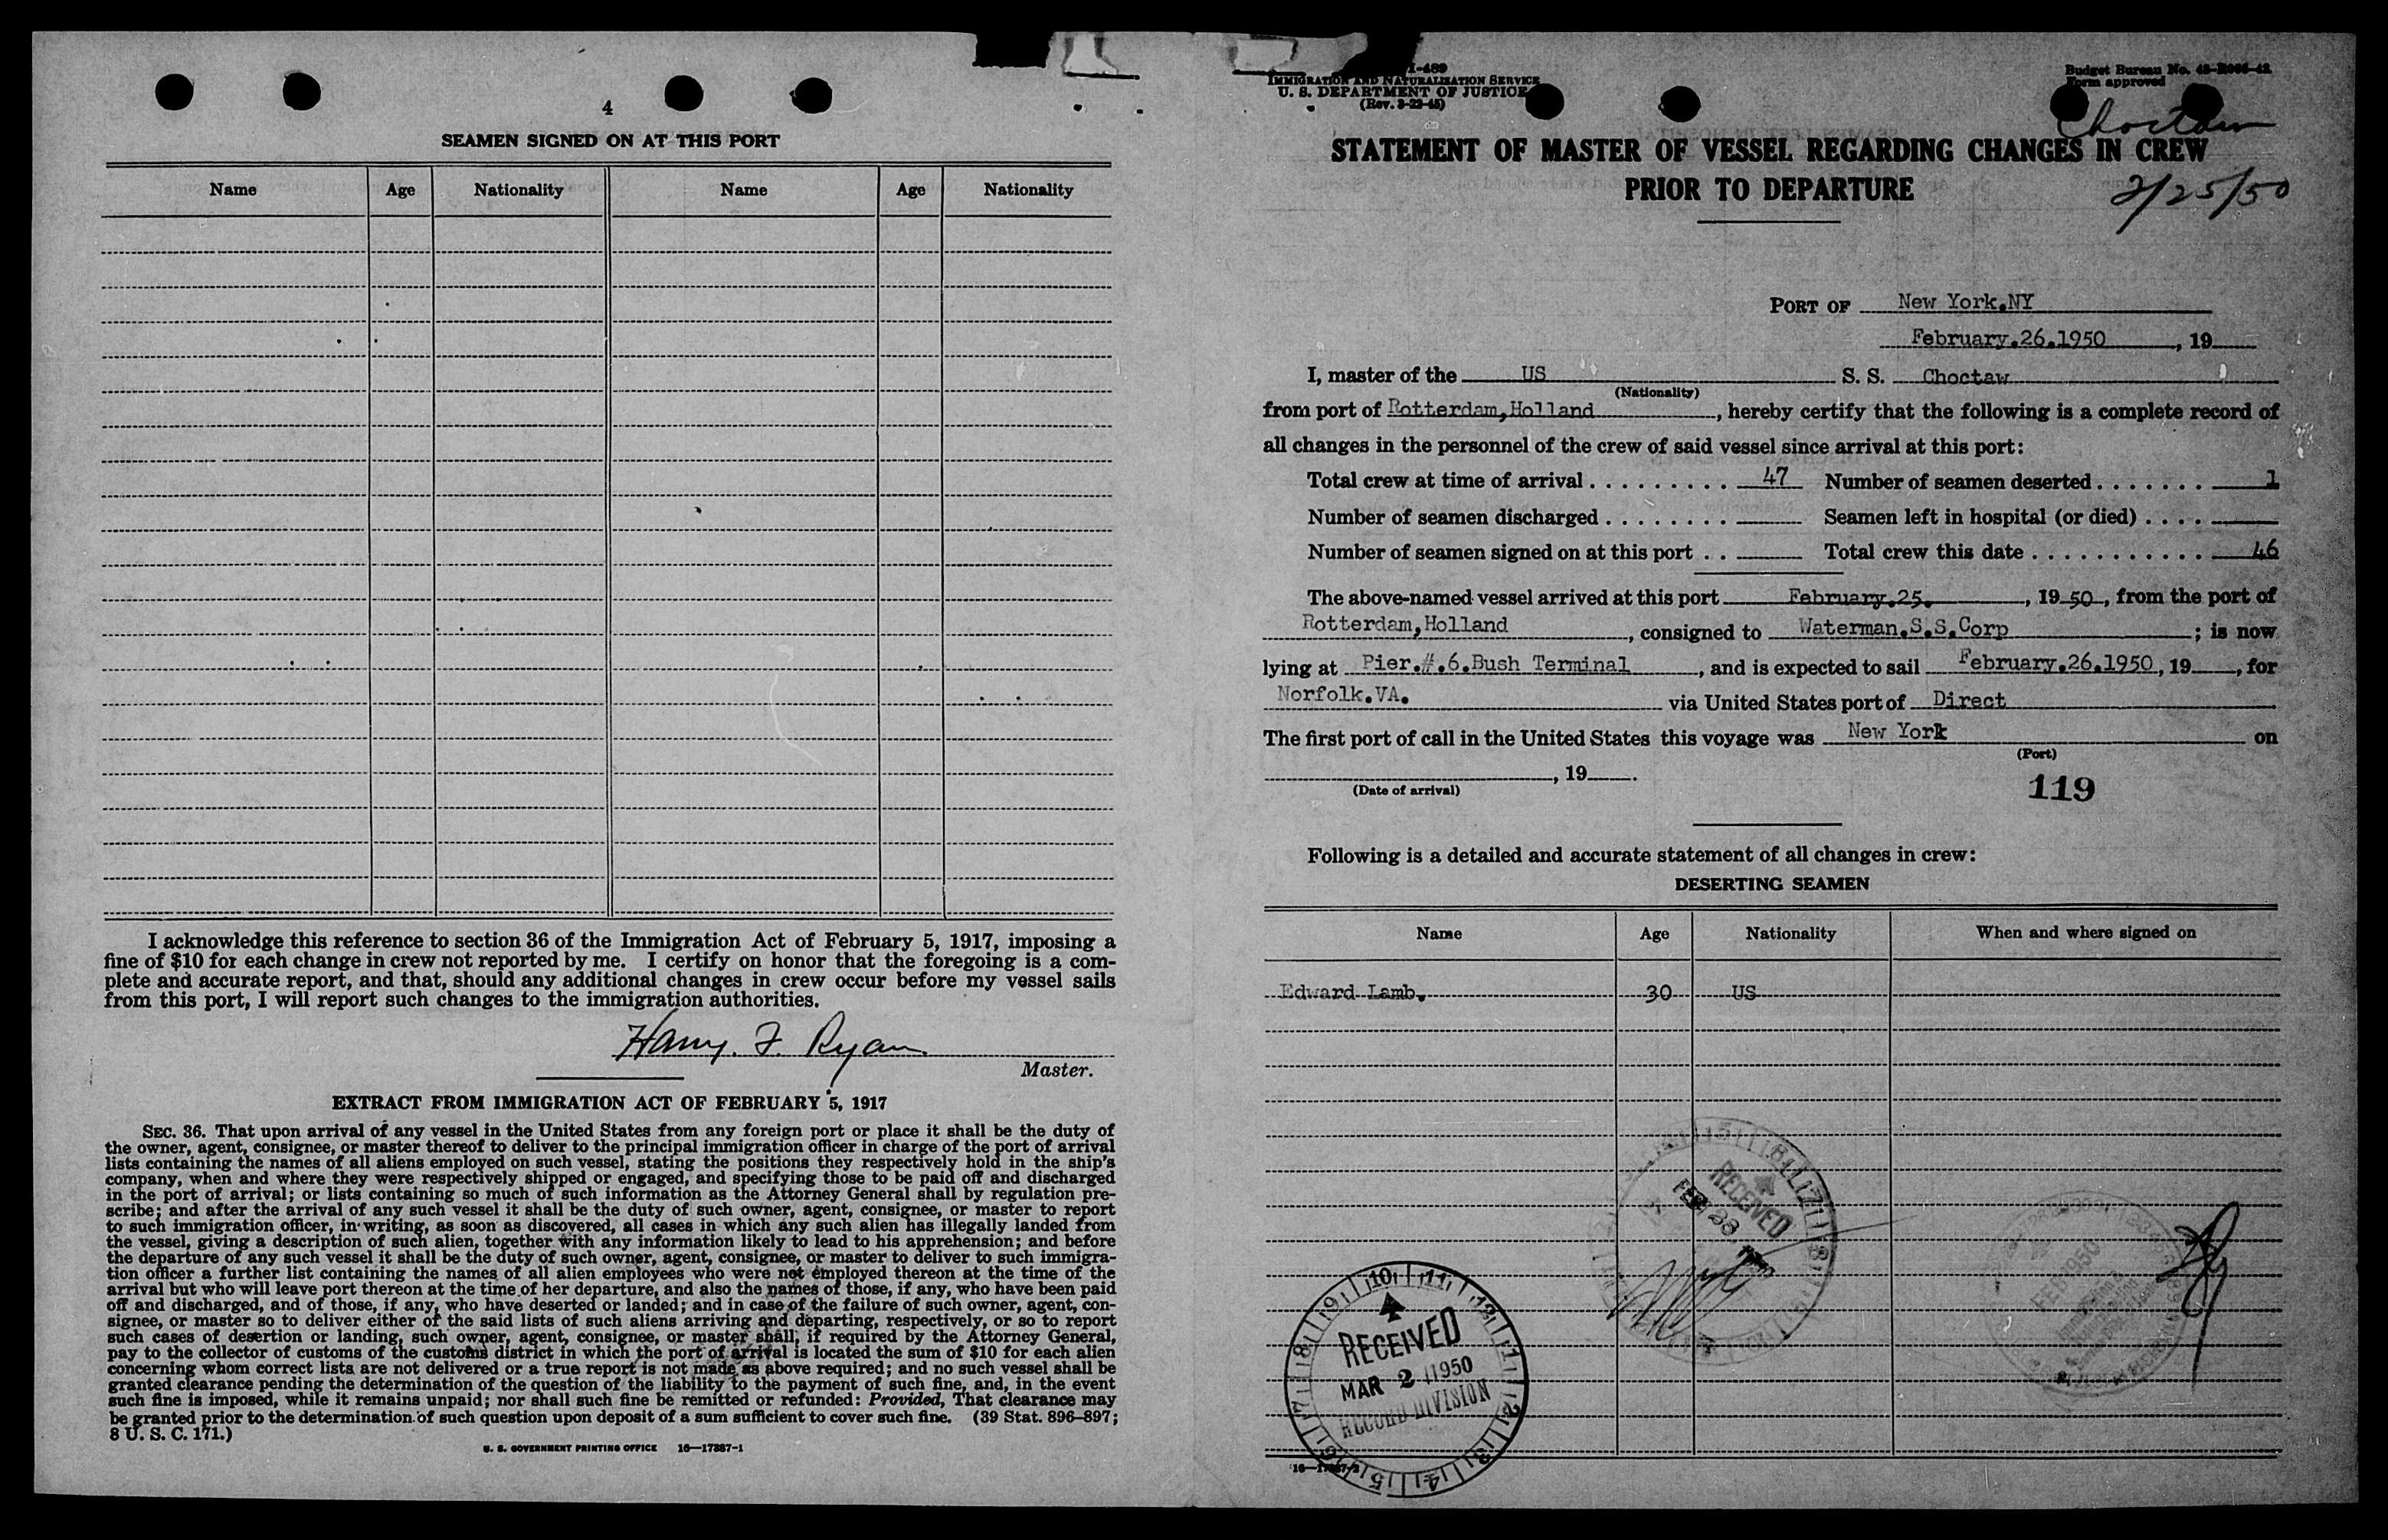 4
SEAMEN SIGNED ON AT THIS PORT
Name Age Nationality Name Age Nationality
I acknowledge this reference to section 36 of the Immigration Act of February 5, 1917, imposing a
fine of $10 for each change in crew not reported by me. I certify on honor that the foregoing is a com-
plete and accurate report, and that, should any additional changes in crew occur before my vessel sails
from this port, I will report such changes to the immigration authorities.
Harry. F. Ryan
Master.
EXTRACT FROM IMMIGRATION ACT OF FEBRUARY 5, 1917
SEC. 36. That upon arrival of any vessel in the United States from any foreign port or place it shall be the duty of
the owner, agent, consignee, or master thereof to deliver to the principal immigration officer in charge of the port of arrival
lists containing the names of all aliens employed on such vessel, stating the positions they respectively hold in the ship's
company, when and where they were respectively shipped or engaged, and specifying those to be paid off and discharged
in the port of arrival; or lists containing so much of such information as the Attorney General shall by regulation pre-
scribe; and after the arrival of any such vessel it shall be the duty of such owner, agent, consignee, or master to report
to such immigration officer, in writing, as soon as discovered, all cases in which any such alien has illegally landed from
the vessel, giving a description of such alien, together with any information likely to lead to his apprehension; and before
the departure of any such vessel it shall be the duty of such owner, agent, consignee, or master to deliver to such immigra-
tion officer a further list containing the names of all alien employees who were not employed thereon at the time of the
arrival but who will leave port thereon at the time of her departure, and also the names of those, if any, who have been paid
off and discharged, and of those, if any, who have deserted or landed; and in case of the failure of such owner, agent, con-
signee, or master so to deliver either of the said lists of such aliens arriving and departing, respectively, or so to report
such cases of desertion or landing, such owner, agent, consignee, or master shall, if required by the Attorney General,
pay to the collector of customs of the customs district in which the port of arrival is located the sum of $10 for each alien
concerning whom correct lists are not delivered or a true report is not made as above required; and no such vessel shall be
granted clearance pending the determination of the question of the liability to the payment of such fine, and, in the event
such fine is imposed, while it remains unpaid; nor shall such fine be remitted or refunded: Provided, That clearance may
be granted prior to the determination of such question upon deposit of a sum sufficient to cover such fine. (39 Stat. 896–897;
8 U. S. C. 171.)
U. S. GOVERNMENT PRINTING OFFICE 16—17387-1
I-489
IMMIGRATION AND NATURALIZATION SERVICE
U. S. DEPARTMENT OF JUSTICE
(Rev. 3-22-45)
Budget Bureau No.
Form approved
Choctaw
STATEMENT OF MASTER OF VESSEL REGARDING CHANGES IN CREW
PRIOR TO DEPARTURE
2/25/50
PORT OF New York.NY
February.26.1950, 19
I, master of the US S. S. Choctaw
(Nationality)
from port of Rotterdam,Holland, hereby certify that the following is a complete record of
all changes in the personnel of the crew of said vessel since arrival at this port:
Total crew at time of arrival 47 Number of seamen deserted 1
Number of seamen discharged Seamen left in hospital (or died)
Number of seamen signed on at this port Total crew this date 46
The above-named vessel arrived at this port February.25., 19 50, from the port of
Rotterdam,Holland, consigned to Waterman.S.S.Corp; is now
lying at Pier.#.6.Bush Terminal, and is expected to sail February.26.1950, 19, for
Norfolk.VA. via United States port of Direct
The first port of call in the United States this voyage was New York on
(Port)
, 19.
(Date of arrival)
119
Following is a detailed and accurate statement of all changes in crew:
DESERTING SEAMEN
Name Age Nationality When and where signed on
Edward Lamb. 30 US
RECEIVED
FEB 28
RECEIVED
MAR 2 1950
RECORD DIVISION
FEB 1950